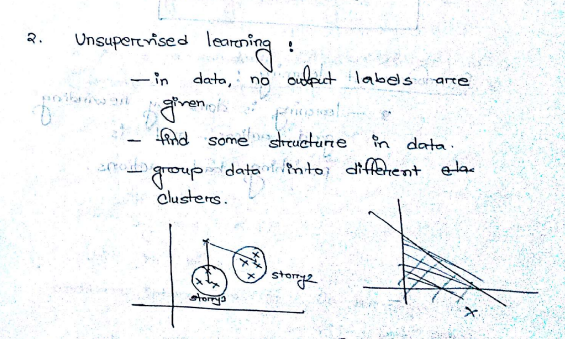 2. Unsupervised learning :
— in data, no output labels are
given.
— find some structure in data.
— group data into different cla
clusters.
story2
story1
x